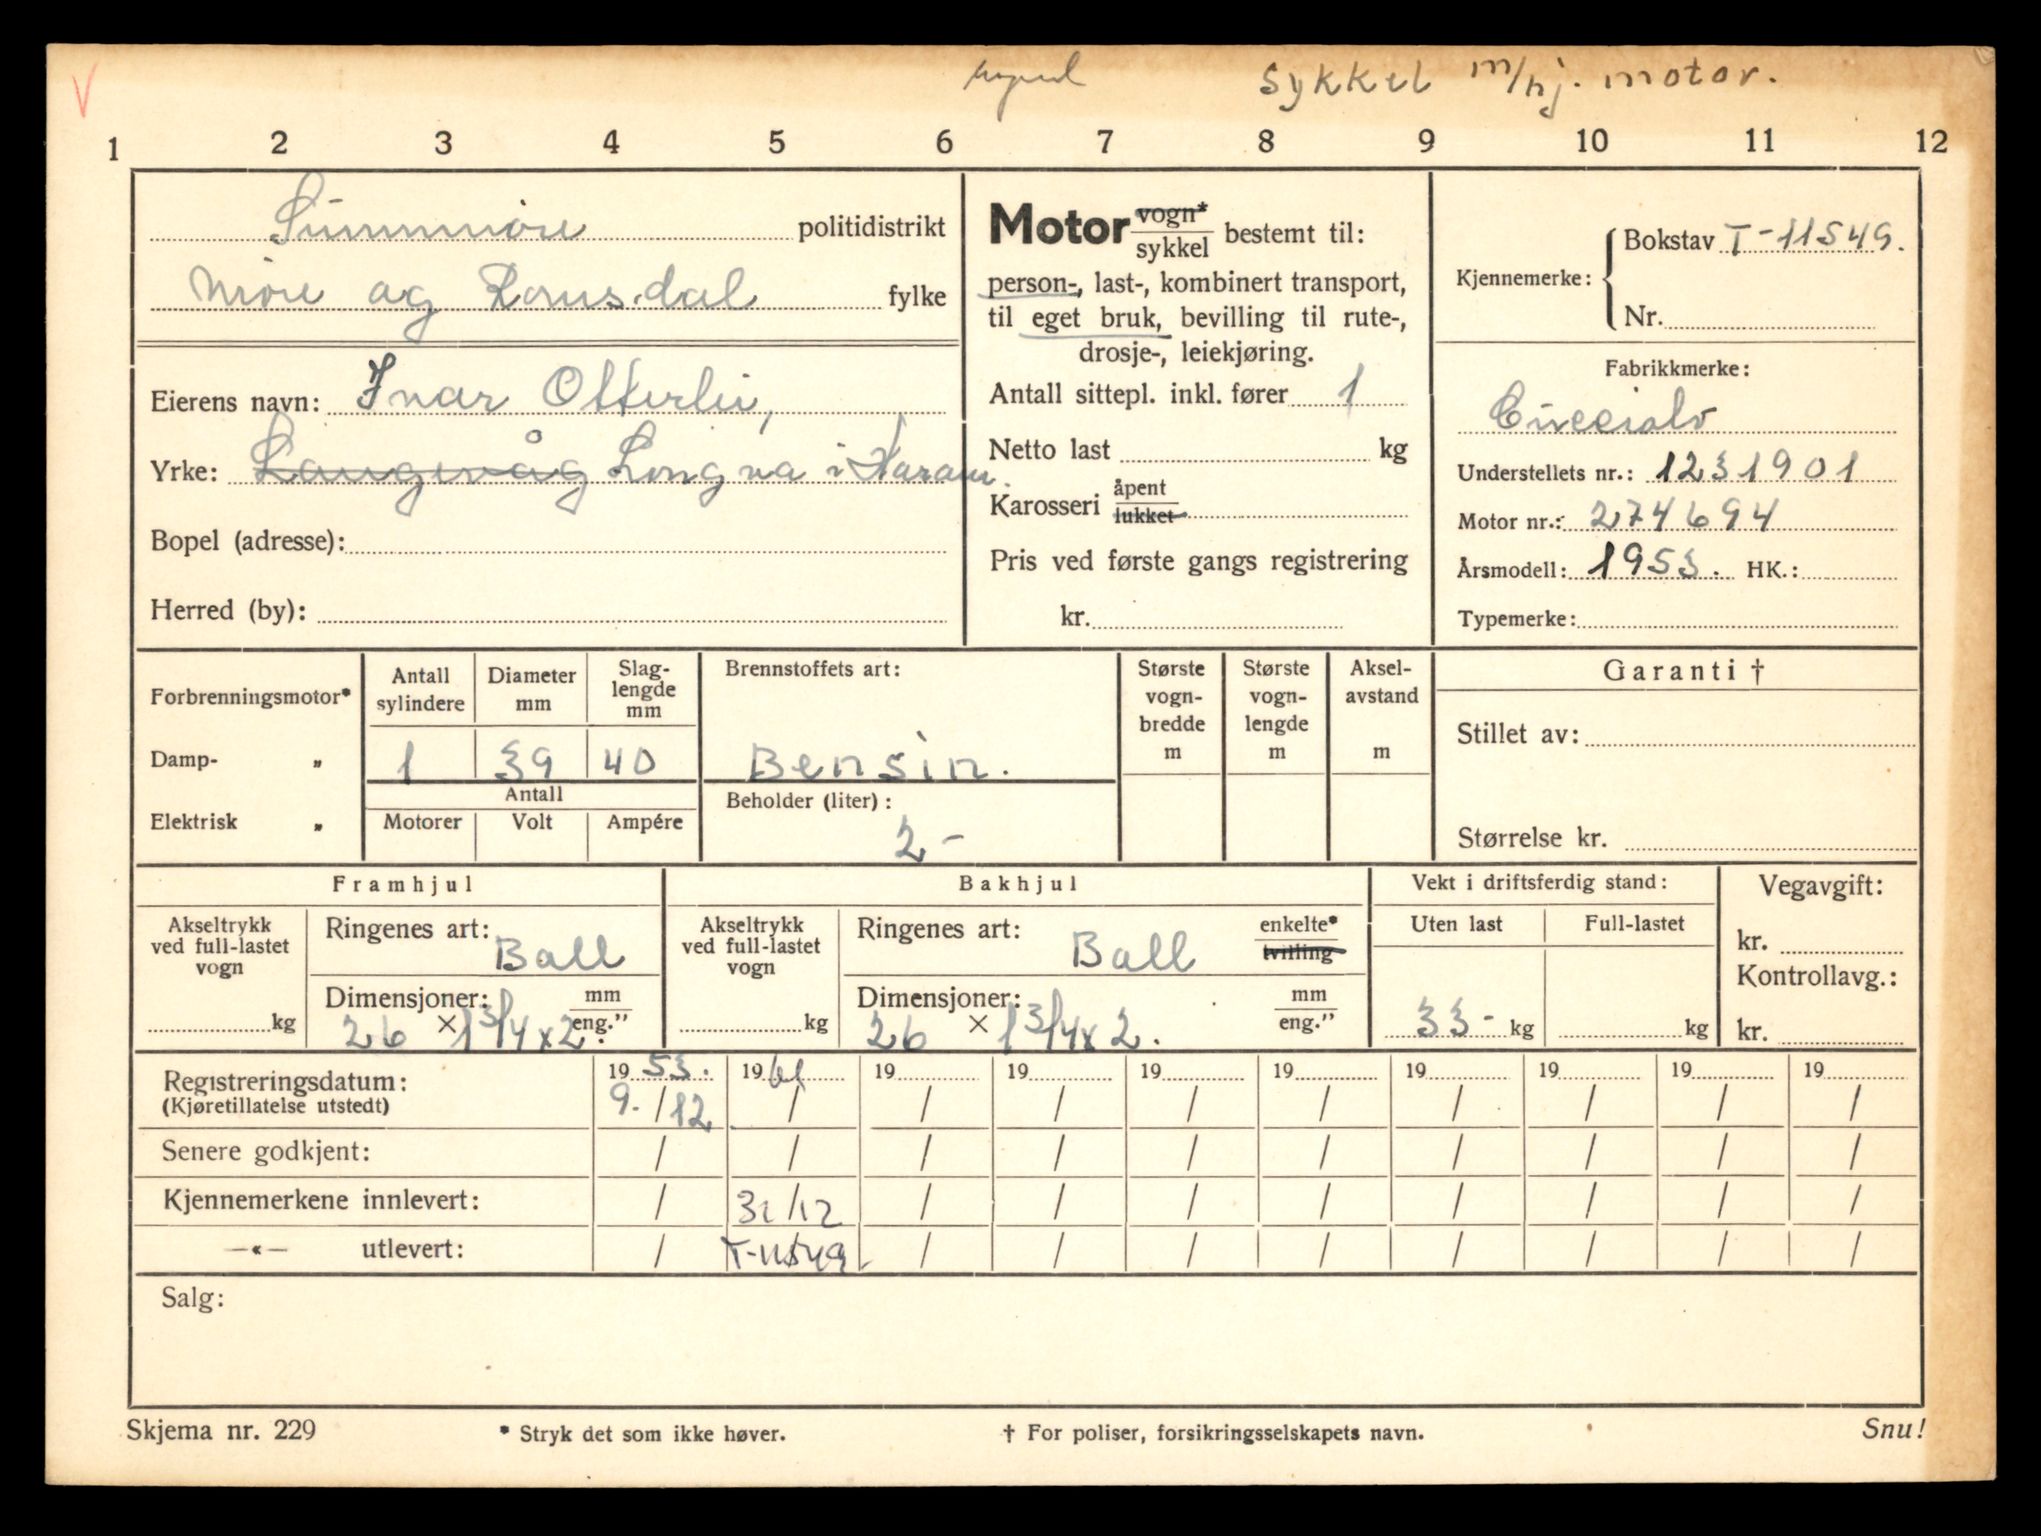 V
Sykkel m/hj. motor.
1 2 3 4 5 6 7 8 9 10 11 12
Sunnmøre politidistrikt
Møre og Romsdal fylke
Eierens navn: Ivar Otterlei,
Yrke: Langevåg Longva i Haram.
Bopel (adresse):
Herred (by):
Motor vogn* sykkel bestemt til:
person-, last-, kombinert transport,
til eget bruk, bevilling til rute-,
drosje-, leiekjøring.
Antall sittepl. inkl. fører 1
Netto last kg
Karosseri åpent lukket
Pris ved første gangs registrering
kr.
Kjennemerke: Bokstav T-11549.
Nr.
Fabrikkmerke:
Understellets nr.: 1231901
Motor nr.: 274694
Årsmodell: 1953. HK.:
Typemerke:
Forbrenningsmotor*
Damp- „
Elektrisk „
Antall sylindere
Diameter mm
Slag-
lengde
mm
1 39 40
Antall
Motorer Volt Ampére
Brennstoffets art:
Bensin.
Beholder (liter):
2-
Største
vogn-
bredde
m
Største
vogn-
lengde
m
Aksel-
avstand
m
Garanti †
Stillet av:
Størrelse kr.
Framhjul
Akseltrykk
ved full-lastet
vogn
kg
Ringenes art:
Ball
Dimensjoner: mm eng."
26 × 1 3/4 x 2.
Bakhjul
Akseltrykk
ved full-lastet
vogn
kg
Ringenes art: enkelte* tvilling
Ball
Dimensjoner: mm eng."
26 × 1 3/4 x 2.
Vekt i driftsferdig stand:
Uten last Full-lastet
33- kg kg
Vegavgift:
kr.
Kontrollavg.:
kr.
Registreringsdatum: 19 53. 19 61 19 19 19 19 19 19 19 19
(Kjøretillatelse utstedt) 9. / 12 / / / / / / / / /
Senere godkjent: / / / / / / / / / /
Kjennemerkene innlevert: / 31/12 / / / / / / / /
—«— utlevert: / T-11549. / / / / / / / /
Salg:
Skjema nr. 229 * Stryk det som ikke høver. † For poliser, forsikringsselskapets navn. Snu!